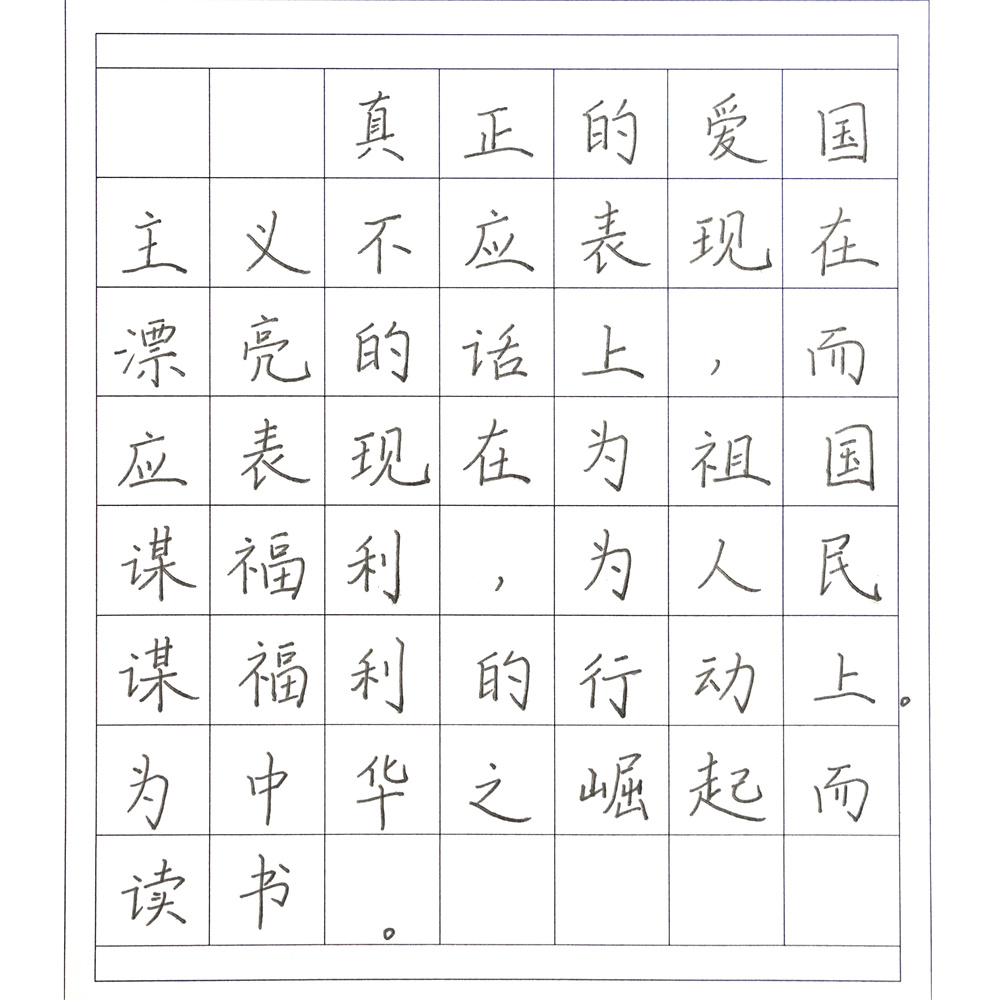 真正的爱国
主义不应表现在
漂亮的话上，而
应表现在为祖国
谋福利，为人民
谋福利的行动上。
为中华之崛起而
读书。